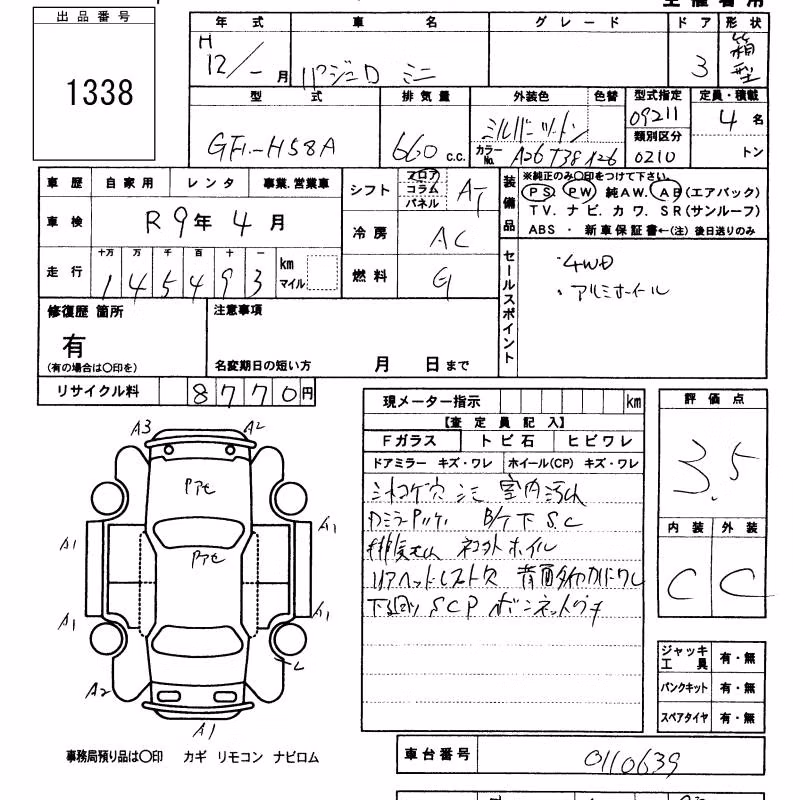 出品番号
1338
年式 車名 グレード ドア 形状
H 12/- 月 パジェロ ミニ 3 箱型
型式 排気量 外装色 色替 型式指定 定員・積載
GF-H58A 660 c.c. シルバーツートン 09211 4 名
カラーNo. A26 T38 126 類別区分 0210 トン
車歴 自家用 レンタ 事業.営業車
シフト フロア コラム パネル AT
装備品 ※純正のみ○印をつけて下さい。
PS. PW 純AW. AB(エアバック)
TV. ナビ. カワ. SR(サンルーフ)
ABS ・ 新車保証書←(注) 後日送りのみ
車検 R9年 4月
冷房 AC
走行 十万 万 千 百 十 一
145493 km マイル
燃料 G
セールスポイント
・4WD
・アルミホイール
修復歴 箇所
有
(有の場合は○印を)
注意事項
名変期日の短い方 月 日まで
リサイクル料 8770円
現メーター指示 km
【査定員記入】
Fガラス トビ石 ヒビワレ
ドアミラー キズ・ワレ ホイール(CP) キズ・ワレ
シートコゲ穴 シミ 室内汚れ
カミラーPッケ B/T下 S.C
排気もれ ネコ外ホイル
リアヘッドレスト欠 背面タイヤカバーワレ
下回り SCP ボンネットグチ
評価点
3.5
内装 外装
C C
A3 A2
Pアセ
Pアセ
A1 A1
A1 A1
A2
A1
ジャッキ工具 有・無
パンクキット 有・無
スペアタイヤ 有・無
事務局預り品は○印 カギ リモコン ナビロム
車台番号 0110639